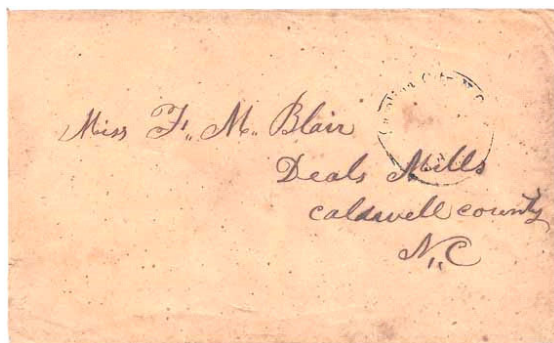 Miss F. M. Blair
Deals Mills
Caldwell county
N. C